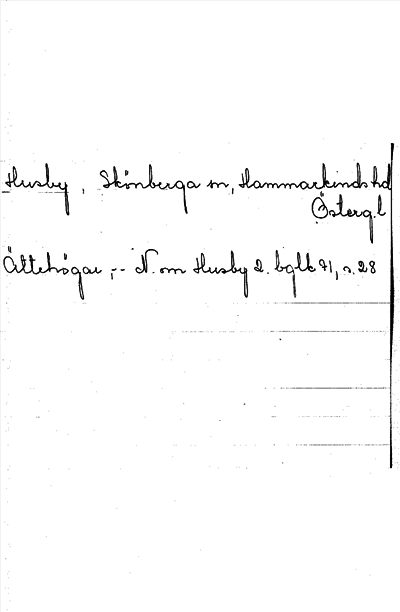 Husby, Skönberga sn, Hammarkinds hd
Österg.l
Ättehögar, -- N. om Husby 2. bglk 71, s. 28